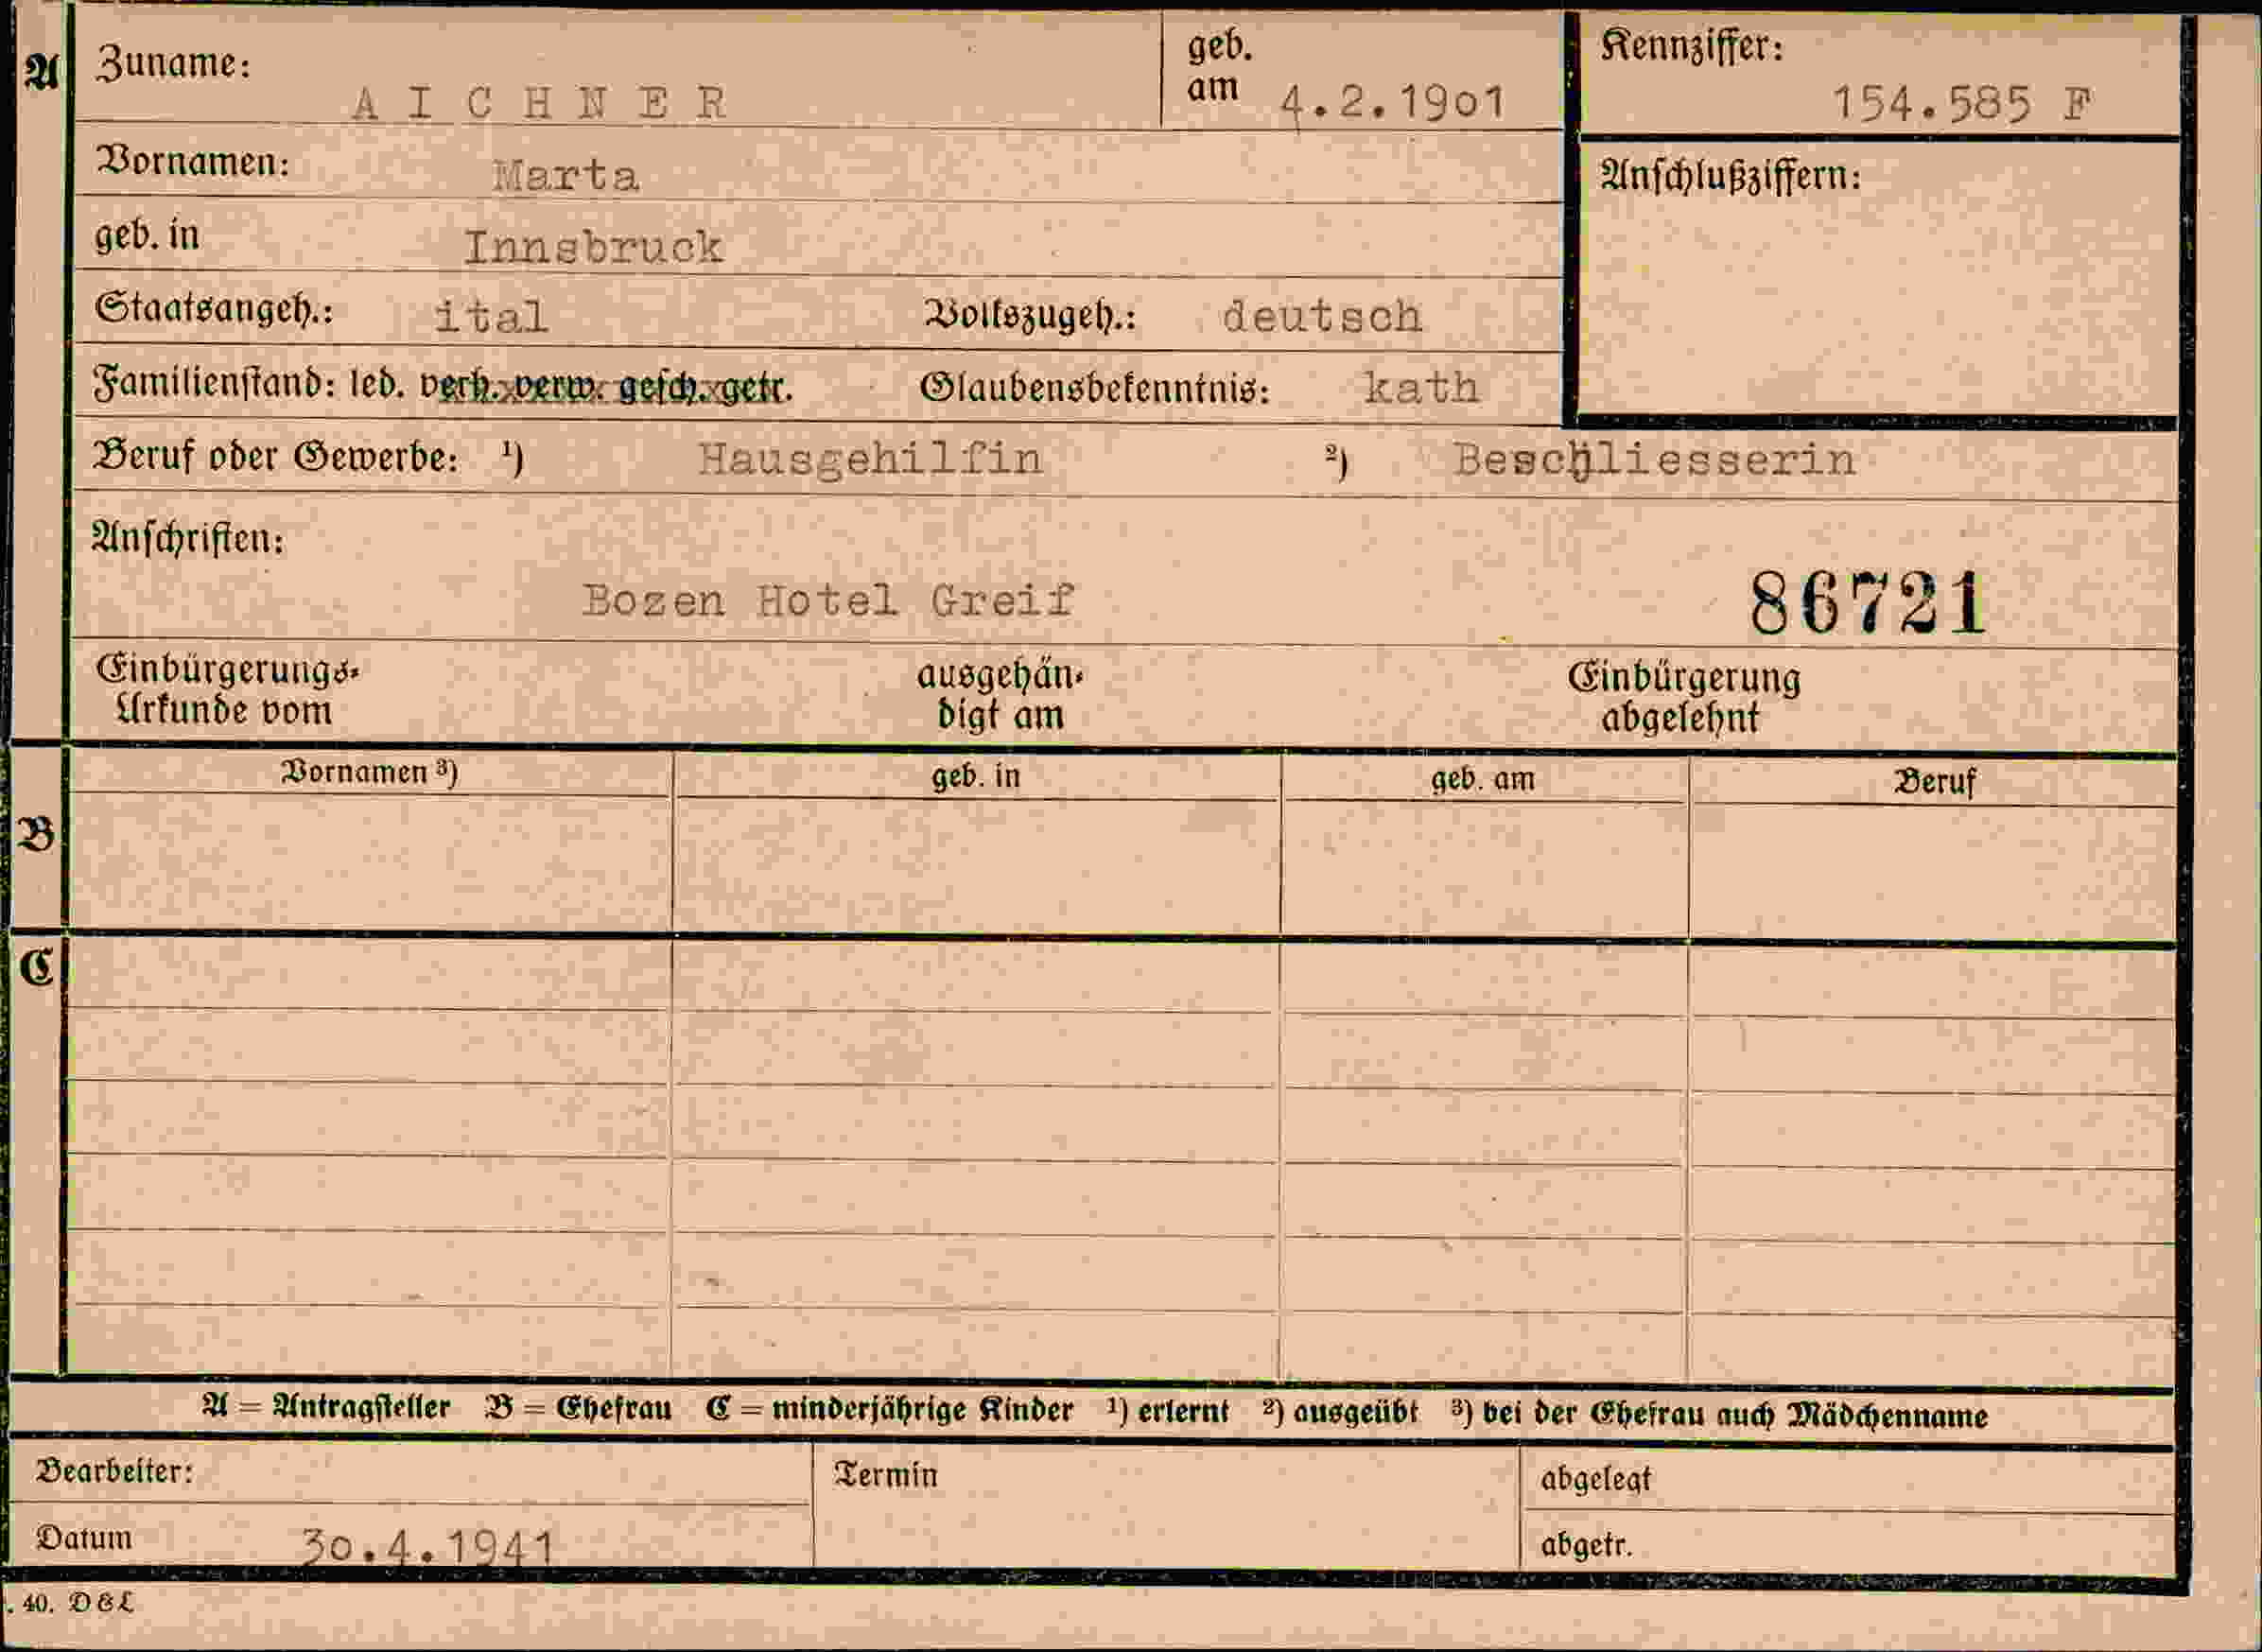 A Zuname: A I C H N E R geb. am 4.2.1901 Kennziffer: 154.585 F
Vornamen: Marta Anschlußziffern:
geb. in Innsbruck
Staatsangeh.: ital Volkszugeh.: deutsch
Familienstand: led. verh. verw. gesch. getr. Glaubensbekenntnis: kath
Beruf oder Gewerbe: ¹) Hausgehilfin ²) Beschliesserin
Anschriften:
Bozen Hotel Greif 86721
Einbürgerungs-Urkunde vom ausgehändigt am Einbürgerung abgelehnt
B Vornamen ³) geb. in geb. am Beruf
C
A = Antragsteller B = Ehefrau C = minderjährige Kinder ¹) erlernt ²) ausgeübt ³) bei der Ehefrau auch Mädchenname
Bearbeiter: Termin abgelegt
Datum 30.4.1941 abgetr.
. 40. D&L